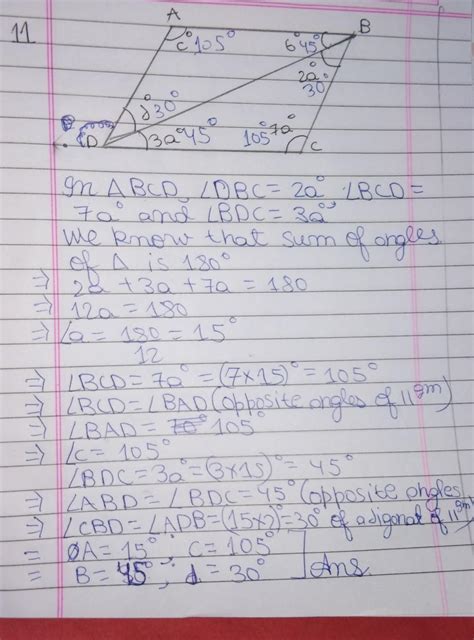 11
A
B
c° 105°
b° 45°
2a°
30°
d° 30°
D
3a° 45°
105° 7a°
C
In ΔBCD, ∠DBC = 2a° ∠BCD =
7a° and ∠BDC = 3a°
We know that sum of angles
of Δ is 180°
⇒ 2a + 3a + 7a = 180
⇒ 12a = 180
⇒ ∠a = 180/12 = 15°
⇒ ∠BCD = 7a° = (7×15)° = 105°
⇒ ∠BCD = ∠BAD (opposite angles of ||gm)
⇒ ∠BAD = 105°
⇒ ∠C = 105°
∠BDC = 3a° = (3×15)° = 45°
⇒ ∠ABD = ∠BDC = 45° (opposite angles
⇒ ∠CBD = ∠ADB = (15×2)° = 30° of adigonal of ||gm
= A = 15° ; C = 105°
= B = 45° ; d = 30° ] Ans.